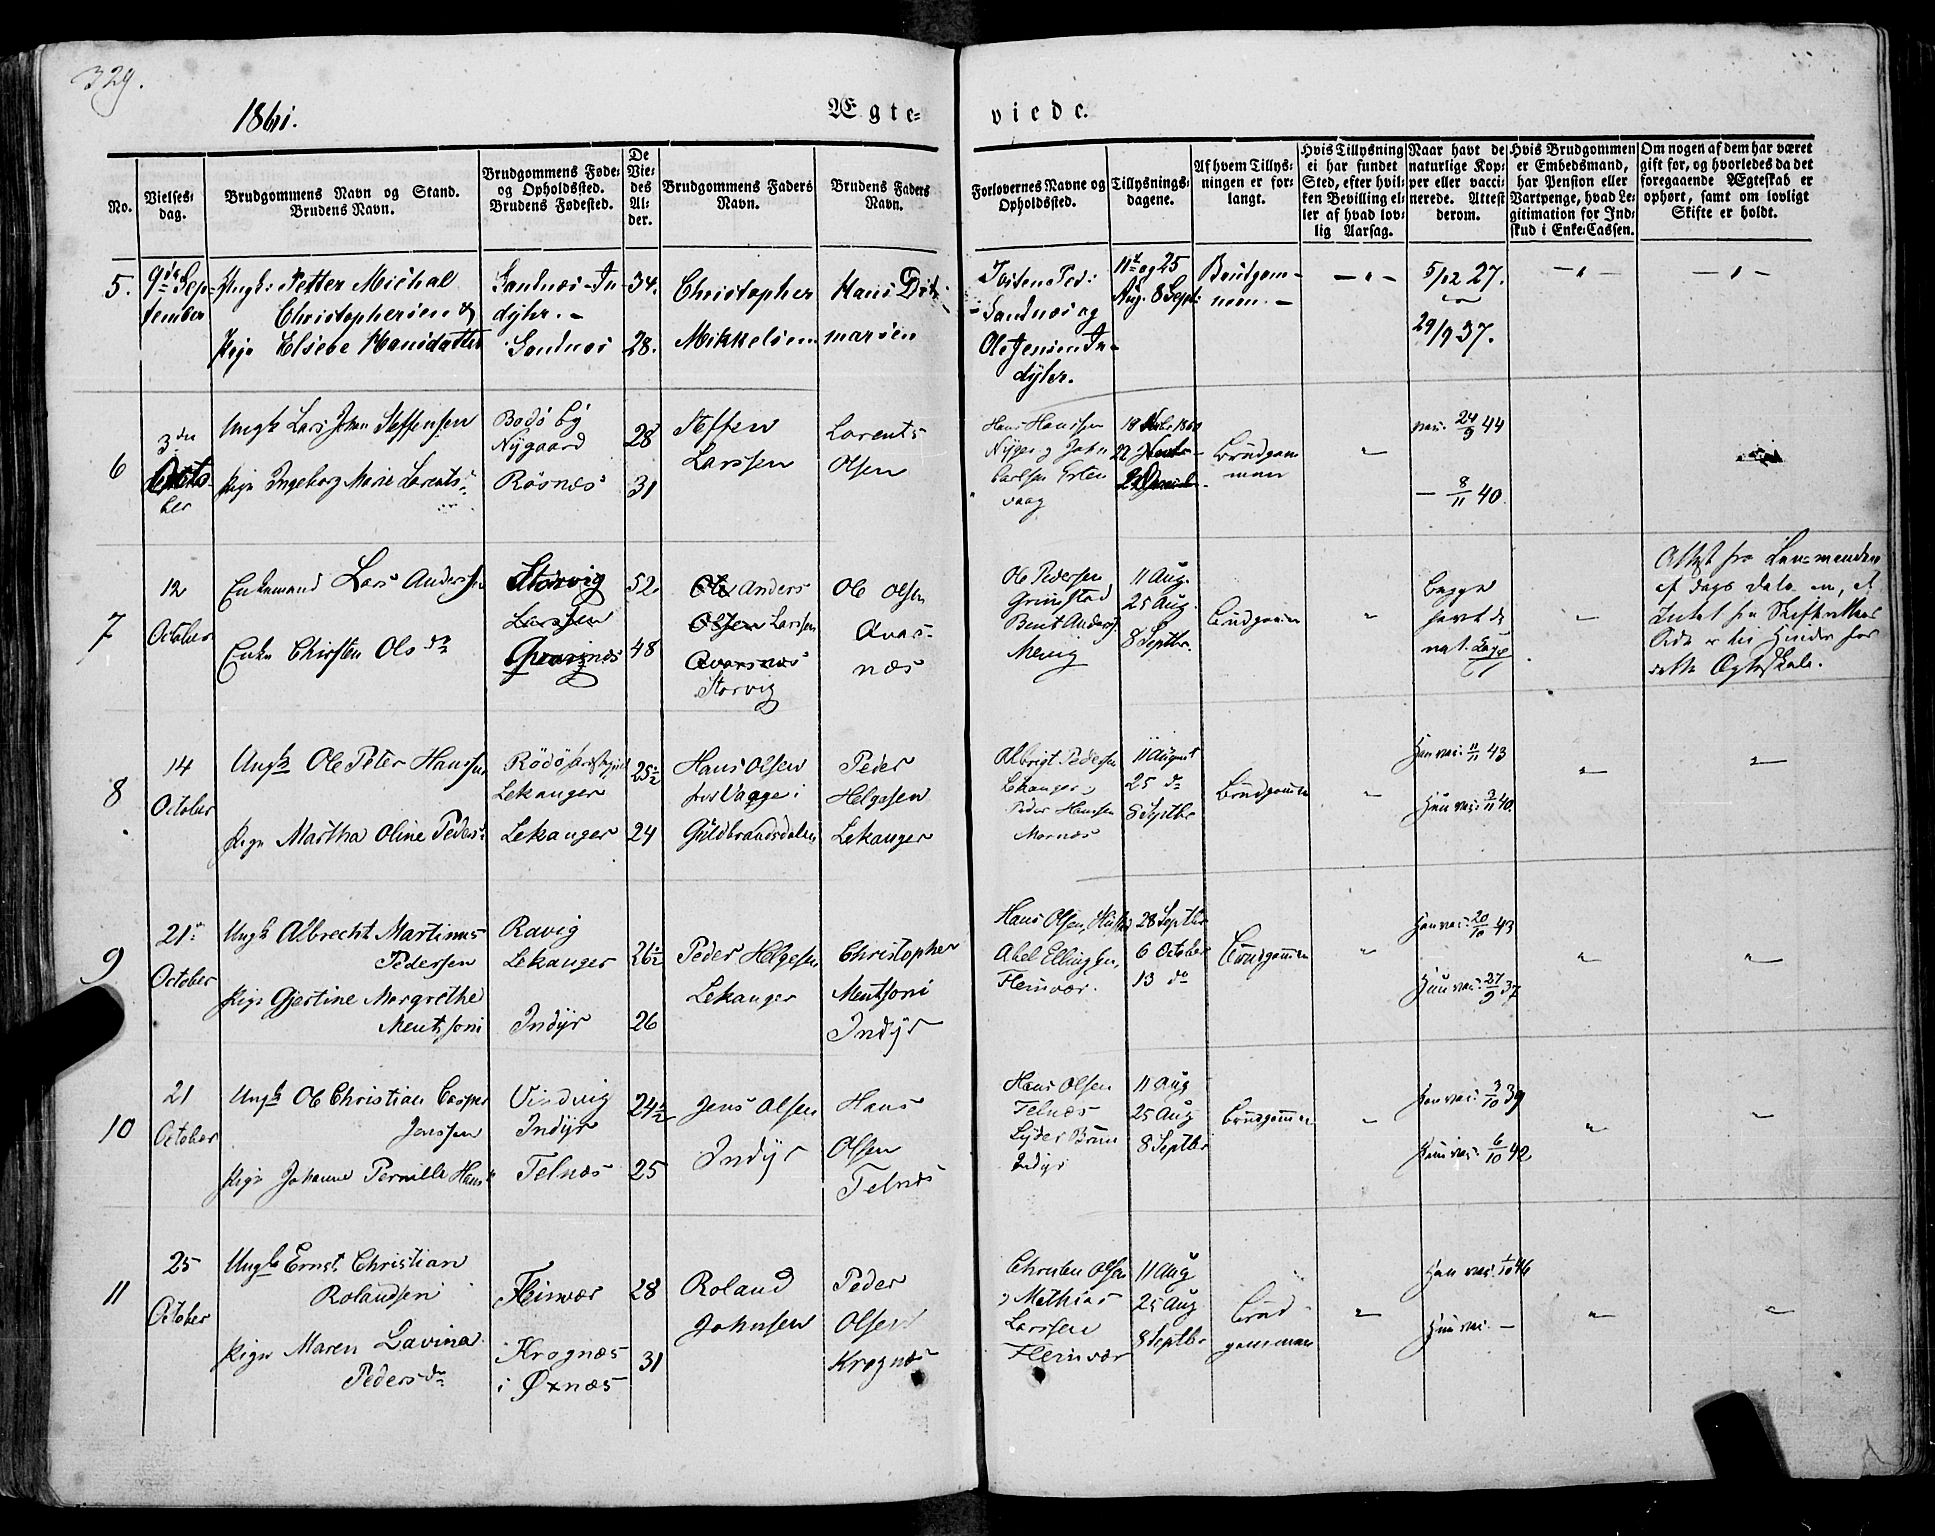 329.
1861.
Ægte-
viede.
No.
Vielses-
dag.
Brudgommens Navn og Stand.
Brudens Navn.
Brudgommens Føde-
og Opholdssted.
Brudens Fødested.
De
Vie-
des
Al-
der.
Brudgommens Faders
Navn.
Brudens Faders
Navn.
Forlovernes Navne og
Opholdssted.
Tillysnings-
dagene.
Af hvem Tillys-
ningen er for-
langt.
Hvis Tillysning
ei har fundet
Sted, efter hvil-
ken Bevilling el-
ler af hvad lov-
lig Aarsag.
Naar havt de
naturlige Kop-
per eller vacci-
nerede. Attest
derom.
Hvis Brudgommen
er Embedsmand,
har Pension eller
Vartpenge, hvad Le-
gitimation for Ind-
skud i Enke-Cassen.
Om nogen af dem har været
gift før, og hvorledes da det
foregaaende Ægteskab er
ophørt, samt om lovligt
Skifte er holdt.
5.
9de Sep-
tember
Ungk: Petter Michal
Christophersen &
Pige Elsebe Hansdatter
Sandnæs - In-
dyhr. -
Sandnæs
34.
28.
Christopher
Mikkelsen
Hans Dit-
marsen
Iversen Ped:
Sandnæs og
Ole Jensen In-
dyhr.
11te og 25
Aug. 8 Sept:
Brudgom-
men. -
5/12 27.
29/9 37.
6
3die
Octo-
ber
Ungk Lars Johan Steffensen
Pige Ingeborg Marie Lorents
Bodø By
Nygaard
Røsnæs
28
31
Steffen
Larssen
Lorents
Olsen
Hans Hanssen
Nyger & John
Carlsen
vaag
22
Brudgom
men
vac. 24/9 44
- 8/11 40.
7
12
October
Enkemand Lars Anderssen
Enke Chirsten Ols dr
Storvig
Larssen
52.
48
Ole Anders
Olsen Larssen
Storvig
Ole Olsen
Avas-
næs
Ole Pedersen
Grimstad
Bent Anders
Mevig
11 Aug.
25 Aug.
8 Septbr.
Brudgommen
Begge
havt de
nat. Kopp
Attest fra Lensmanden
af Dags Dato om, at
Intet fra Skifterettens
Side er til Hinder for
dette Ægteskab.
8
14
October
Ungk Ole Peter Hanssen
Pige Martha Oline Peders
Rødø
Lekanger
Lekanger
25½
24
Hans Olsen
fra Vaage i
Guldbrandsdalen
Peder
Helgesen
Lekanger
Albrigt Pedersen
Lekanger,
Peder Hanssen
Mornæs
11 August
25 do
8 Septbr
Brudgommen
Han vac. 11/11 43
Hun vac. 3/11 40.
9
21
October
Ungk Albrecht Martinus
Pedersen
Pige Gjertine Margrethe
Mentssoni
Ravig
Lekanger
Indyr
26½
26
Peder Helgesen
Lekanger
Christopher
Mentsoni
Indyr
Hans Olsen,
Abel Ellingsen,
Fleinvær.
28 Septbr
6 October
13 do
Brudgommen
Han vac. 20/10 43
Hun vac. 27/9 37
10
21
October
Ungk Ole Christian Casper
Jenssen
Pige Johanne Pernille Hans
Vindvig
Indyr
Felnæs
24½
25
Jens Olsen
Indyr
Hans
Olsen
Felnæs
Hans Olsen
Felnæs
Lyder Brun
Indyr
11 Aug
25 Aug
8 Septbr
Brudgommen
Han vac. 3/10 39
Hun vac. 6/10 42
11
25
October
Ungk Ernst Christian
Rolandsen
Pige Maren Lavina
Peders dr
Fleinvær
Krognæs
i Øxnæs
28
31
Roland
Johnsen
Peder
Olsen
Krognæs
Christen Olsen
Mathias
Larssen
Fleinvær
11 Aug
25 Aug
8 Septbr
Brud-
gommen
Han vac. 1/10 46
Hun vac. -